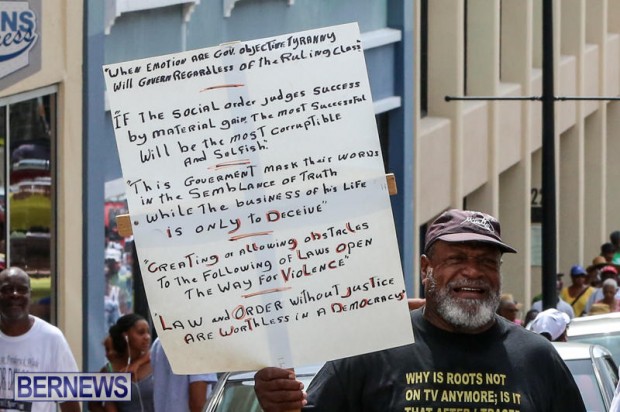 "WHEN EMOTION ARE GOV. OBJECTIVE TYRANNY
WILL GOVERN REGARDLESS OF THE RULING CLASS"
"IF THE SOCIAL ORDER JUDGES SUCCESS
BY MATERIAL GAIN THE MOST SUCCESSFUL
WILL BE THE MOST CORRUPTIBLE
AND SELFISH"
"THIS GOVERMENT MASK THEIR WORDS
IN THE SEMBLANCE OF TRUTH
WHILE THE BUSINESS OF HIS LIFE
IS ONLY TO DECEIVE"
"CREATING OR ALLOWING OBSTACLES
TO THE FOLLOWING OF LAWS OPEN
THE WAY FOR VIOLENCE"
"LAW AND ORDER WITHOUT JUSTICE
ARE WORTHLESS IN A DEMOCRACY"
WHY IS ROOTS NOT
ON TV ANYMORE; IS IT
BERNEWS